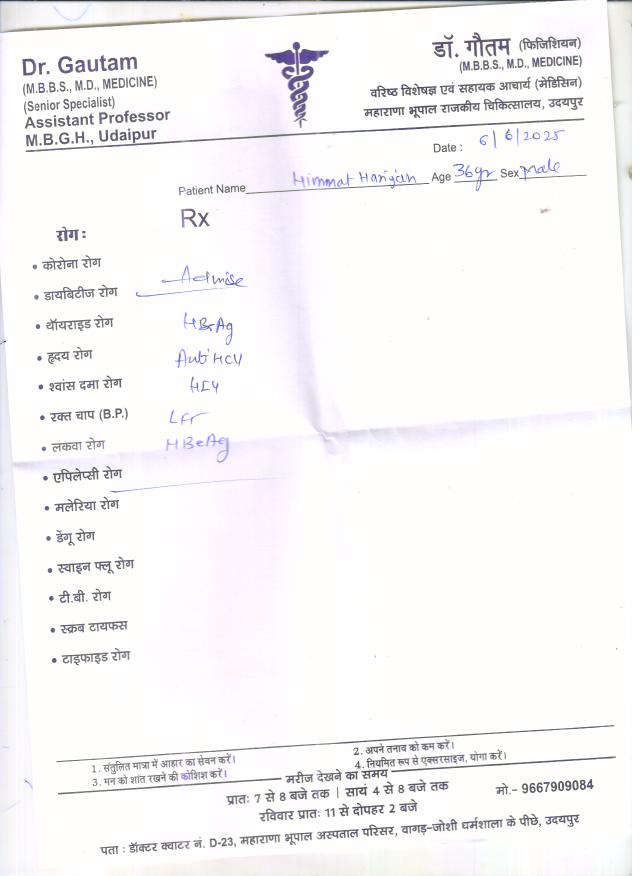 Dr. Gautam
(M.B.B.S., M.D., MEDICINE)
(Senior Specialist)
Assistant Professor
M.B.G.H., Udaipur
डॉ. गौतम (फिजिशियन)
(M.B.B.S., M.D., MEDICINE)
वरिष्ठ विशेषज्ञ एवं सहायक आचार्य (मेडिसिन)
महाराणा भूपाल राजकीय चिकित्सालय, उदयपुर
Date : 6/6/2025
Patient Name Himmat Harijan Age 36yr Sex male
Rx
रोग :
• कोरोना रोग
• डायबिटीज रोग
Advise
• थॉयराइड रोग
HBsAg
• हृदय रोग
Anti HCV
• श्वांस दमा रोग
HIV
• रक्त चाप (B.P.)
LFT
• लकवा रोग
HBeAg
• एपिलेप्सी रोग
• मलेरिया रोग
• डेंगू रोग
• स्वाइन फ्लू रोग
• टी.बी. रोग
• स्क्रब टायफस
• टाइफाइड रोग
1. संतुलित मात्रा में आहार का सेवन करें।
2. अपने तनाव को कम करें।
3. मन को शांत रखने की कोशिश करें।
4. नियमित रूप से एक्सरसाइज, योगा करें।
मरीज देखने का समय
प्रातः 7 से 8 बजे तक | सायं 4 से 8 बजे तक
मो.- 9667909084
रविवार प्रातः 11 से दोपहर 2 बजे
पता : डॉक्टर क्वाटर नं. D-23, महाराणा भूपाल अस्पताल परिसर, वागड़-जोशी धर्मशाला के पीछे, उदयपुर